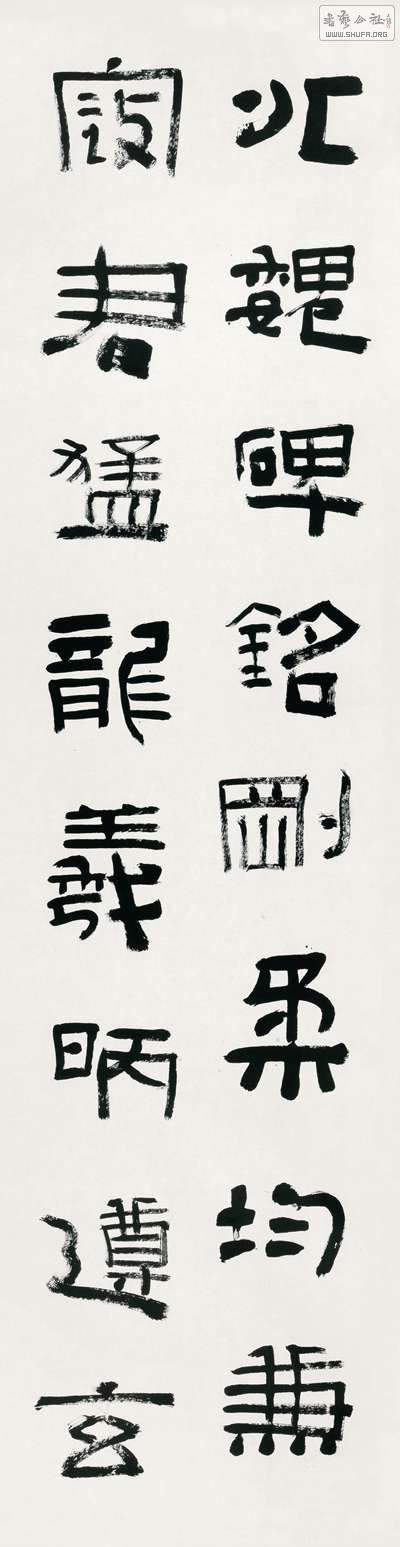 書藝公社
WWW.SHUFA.ORG
北魏碑銘剛柔均兼
寇君猛龍羲昞遵玄